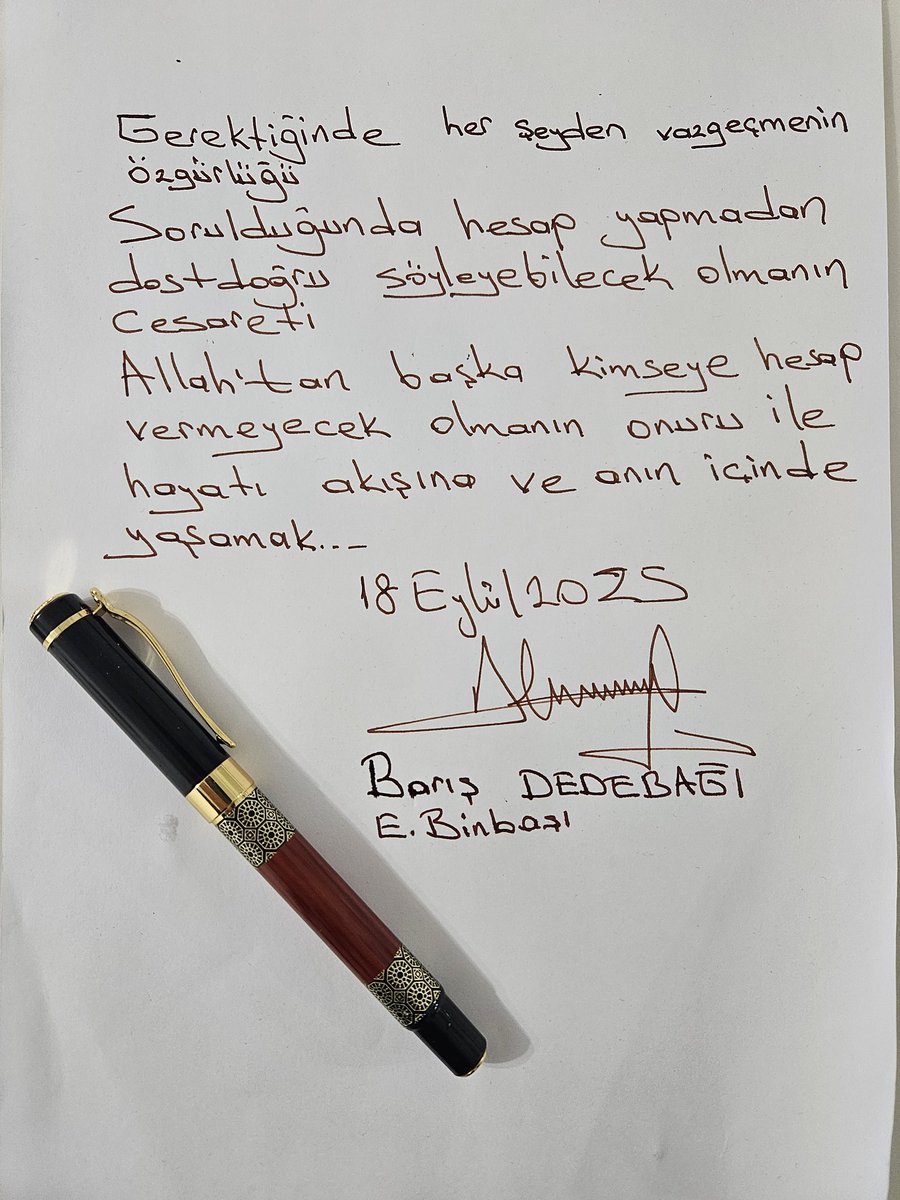 Gerektiğinde her şeyden vazgeçmenin
özgürlüğü
Sorulduğunda hesap yapmadan
dostdoğru söyleyebilecek olmanın
cesareti
Allah'tan başka kimseye hesap
vermeyecek olmanın onuru ile
hayatı akışına ve anın içinde
yaşamak...
18 Eylül 2025
Barış DEDEBAĞI
E. Binbaşı